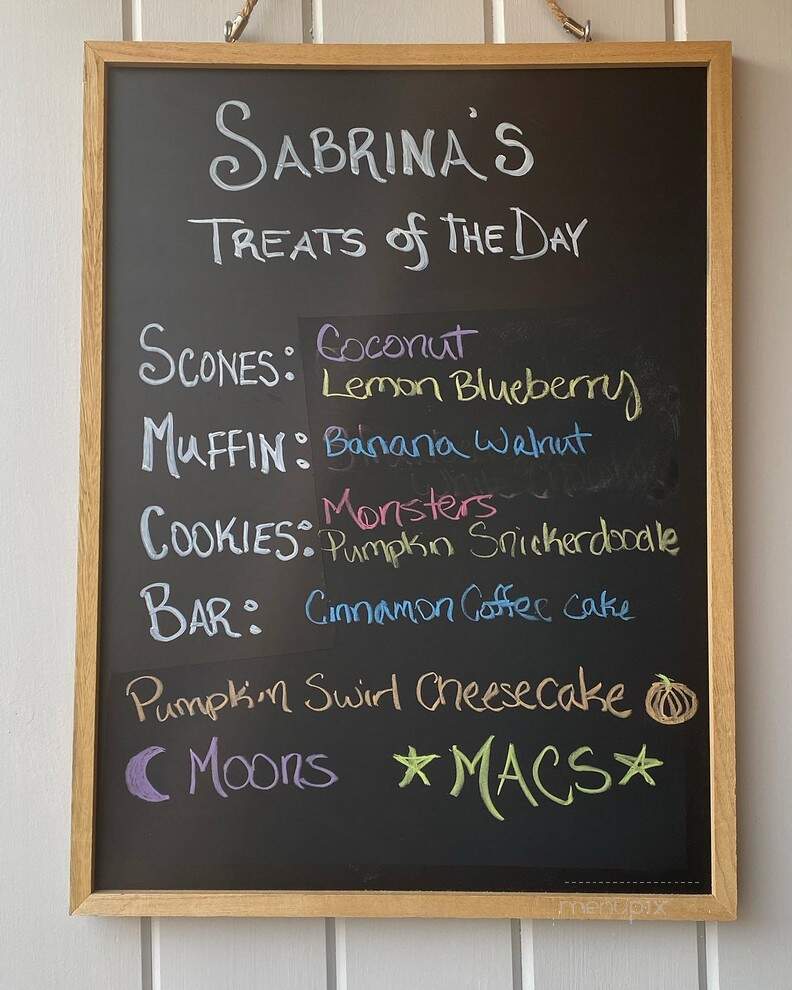 SABRINA'S
TREATS of THE DAY
SCONES: Coconut
Lemon Blueberry
MUFFIN: Banana Walnut
COOKIES: Monsters
Pumpkin Snickerdoodle
BAR: Cinnamon Coffee Cake
Pumpkin Swirl Cheesecake
Moons MACS
menupix